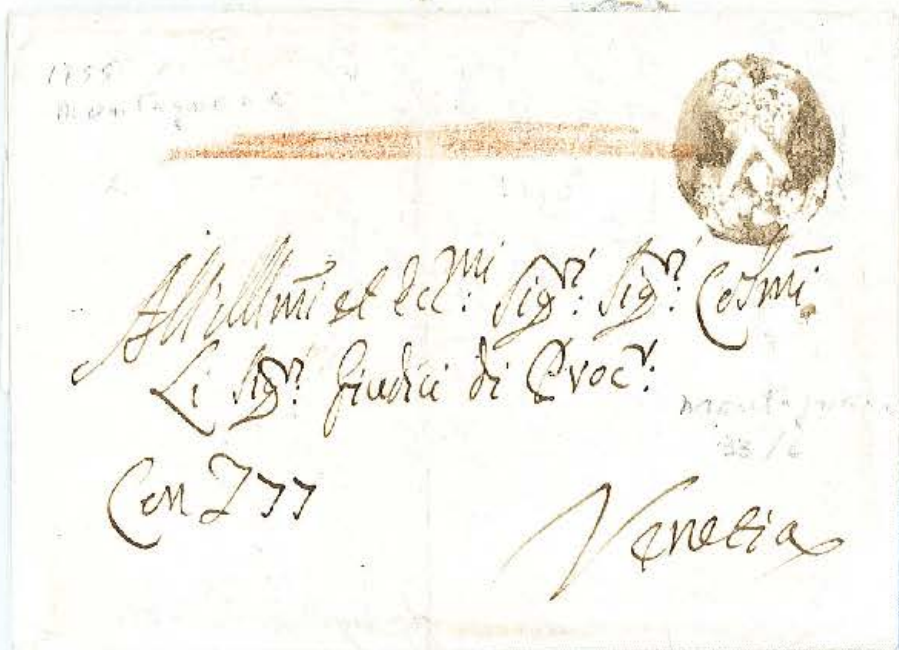 1755
Montagnana
All Illmi et Ecc.mi Sig.ri Sig.ri Colmi
Li Sig.ri Giudici di Proc.r:
Montagnana
33/6
Con
Venetia